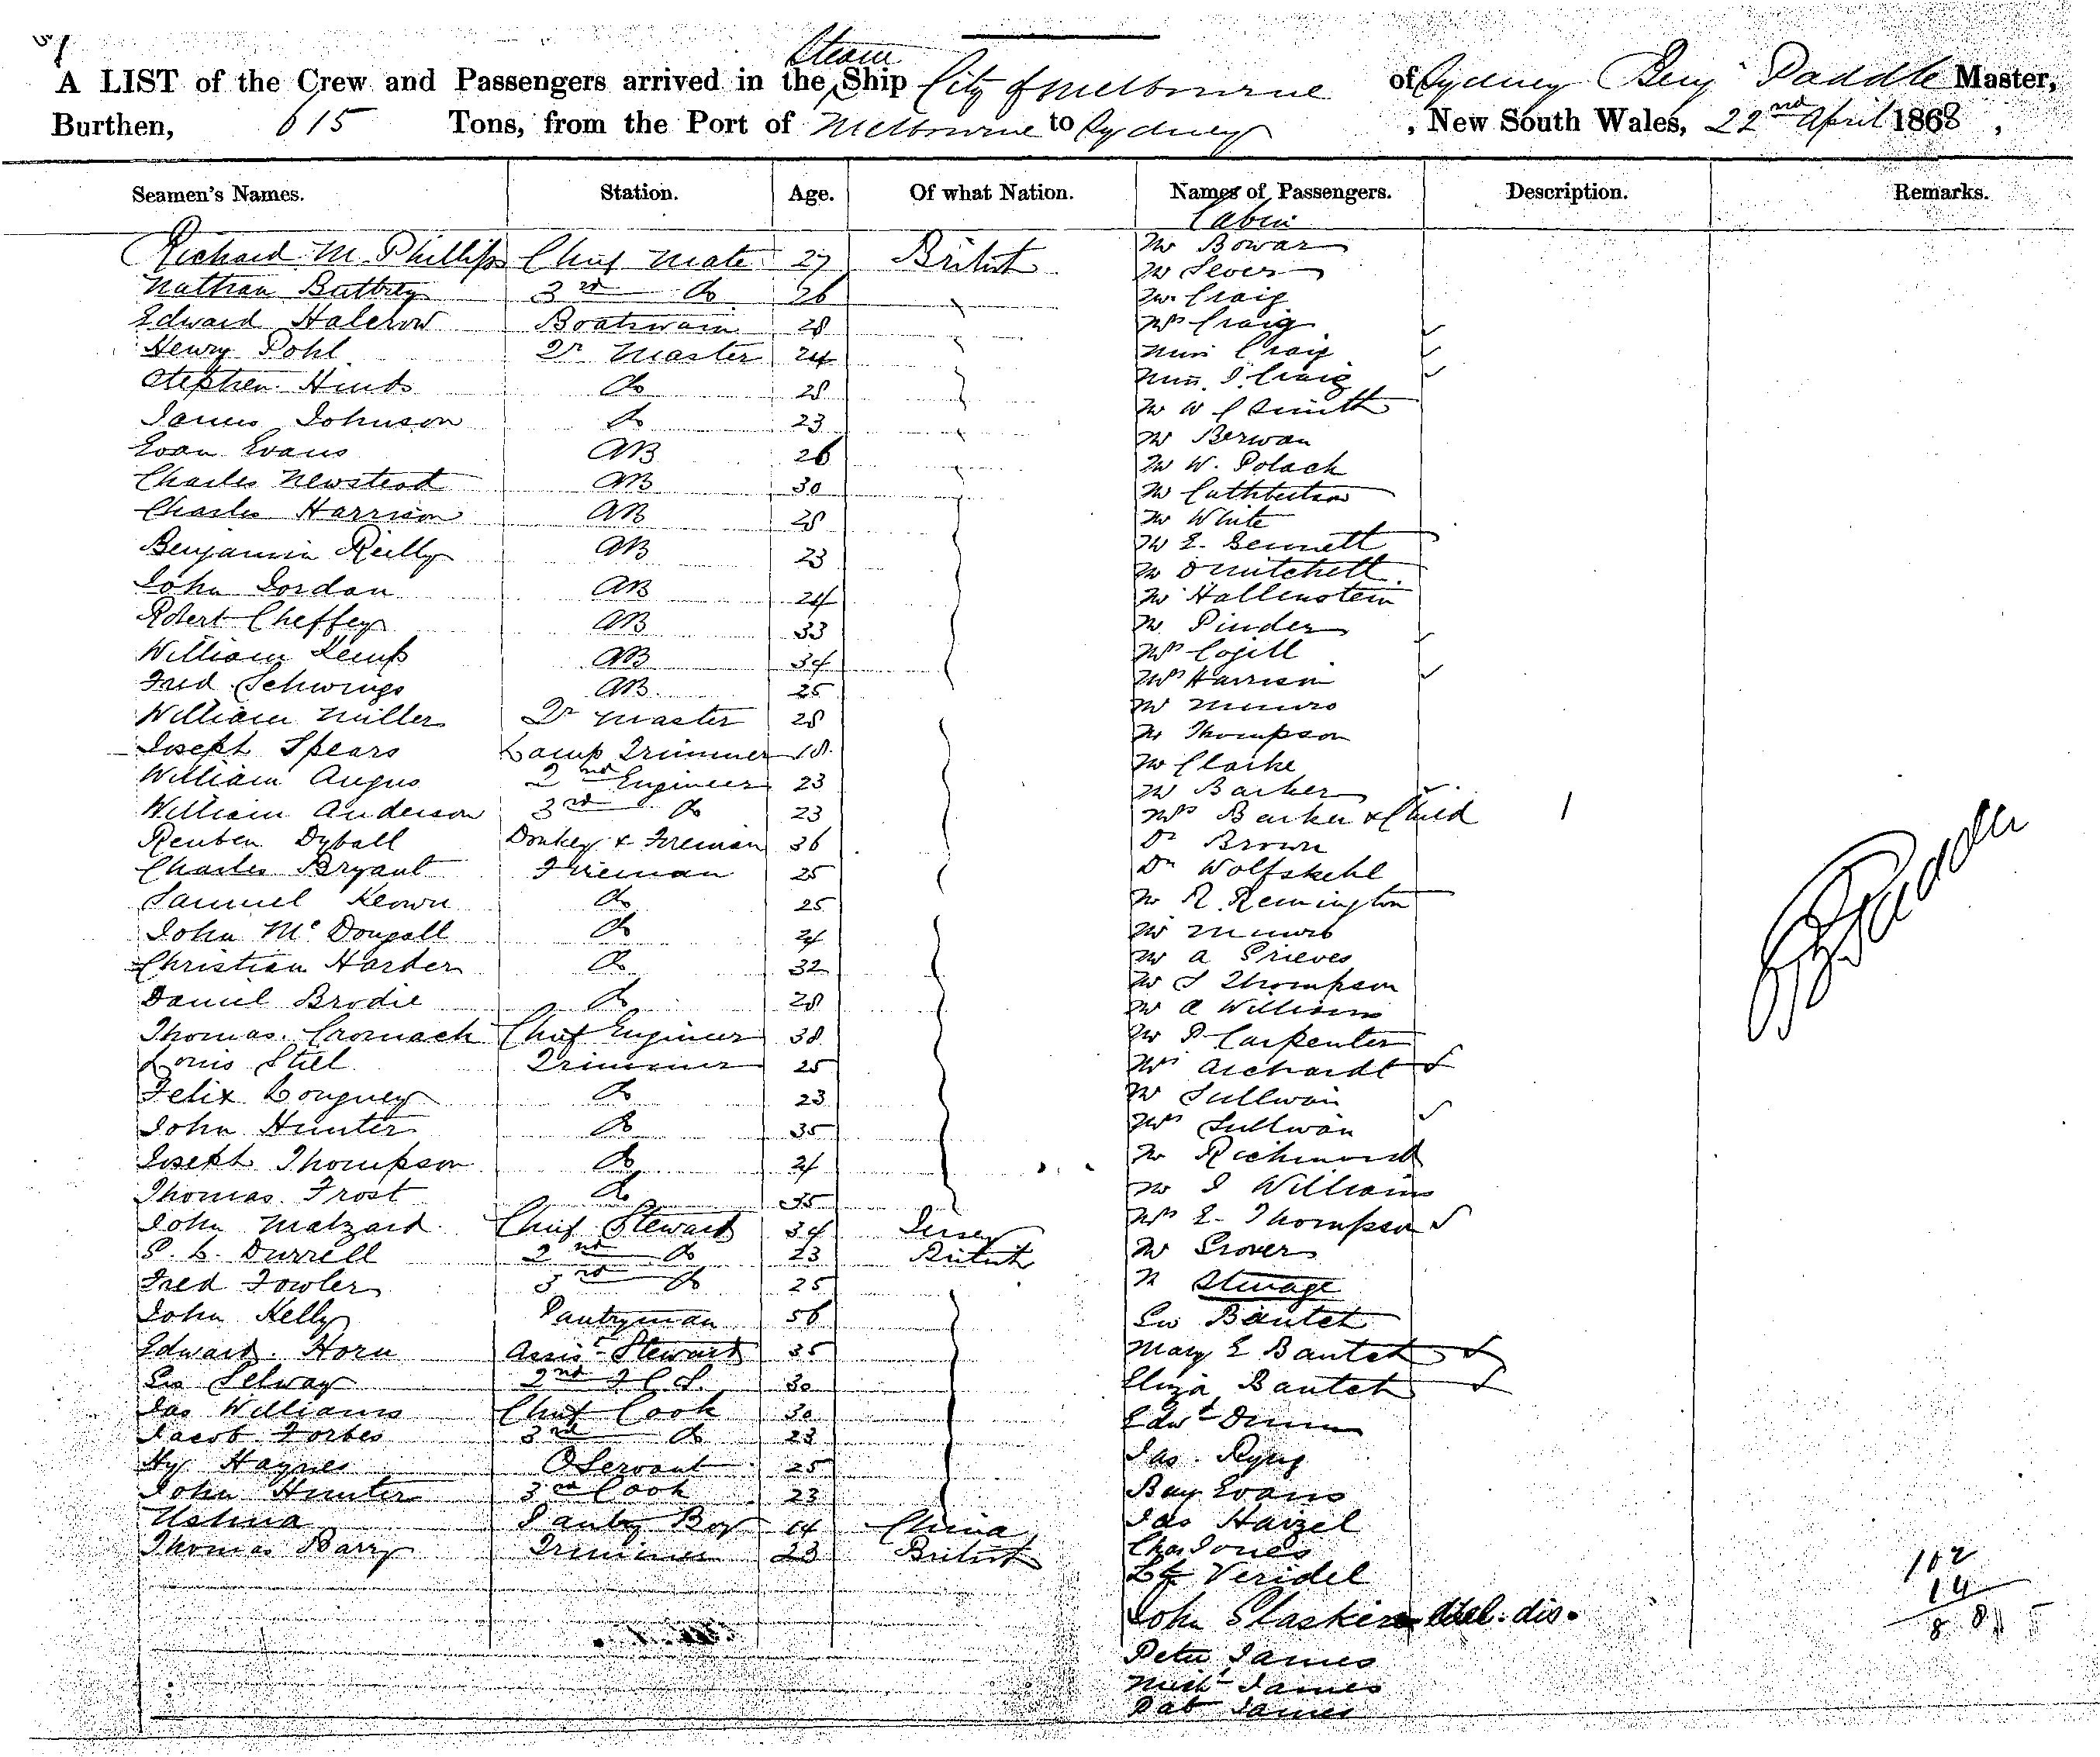 Steam
A LIST of the Crew and Passengers arrived in the Ship City of Melbourne of Sydney Benj Paddle Master,
Burthen, 615 Tons, from the Port of Melbourne to Sydney, New South Wales, 22nd April 1868,
Seamen's Names. Station. Age. Of what Nation. Names of Passengers. Description. Remarks.
Cabin
Richard M. Phillips Chief Mate 27 British Mr Bowar
Mr
Nathan Buttrey 3rd do 26 Mr Craig
Edward Halcrow Boatswain 28 Mrs Craig
Henry Pohl Qr Master 24 Miss Craig
Stephen Hinds do 28 Miss J. Craig
James Johnson do 23 Mr W C Smith
Evan Evans AB 26 Mr Berwan
Charles Newstead AB 30 Mr W. Polack
Mr Cuthbertson
Charles Harrison AB 28 Mr White
Benjamin Reilly AB 23 Mr E. Bennett
Mr D Mitchell
John Jordan AB 24 Mr Hallenstein
Robert Cheffey AB 33 Mr Pinder
William Kemp AB 34 Mrs Cogill
Fred Schwings AB 25 Mrs Harrison
William Miller Qr Master 28 Mr Munro
Joseph Spears Lamp Trimmer 18 Mr Thompson
William Angus 2nd Engineer 23 Mr Clarke
Mr Barker
William Anderson 3rd do 23 Mrs Barker & Child 1
Reuben Dyball Donkey & Fireman 36 Dr Brown
Charles Bryant Fireman 25 Dr Wolfskehl
Samuel Keown do 25 Mr R. Remington
John McDougall do 24 Mr Munro
Christian Harder do 32 Mr A Grieves
Mr J Thompson
Daniel Brodie do 28 Mr A Williams
Thomas Cromack Chief Engineer 38 Mr P Carpenter
Louis Stiel Trimmer 25 Archardt
Felix Longney do 23 Mr Sullivan
John Hunter do 35 Mrs Sullivan
Joseph Thompson do 24 Mr Richmond
Thomas Frost do 35 Mr J Williams
John Malzard Chief Steward 34 Jersey Mrs E. Thompson
P. L. Durrell 2nd do 23 British Mr Grover
Fred Fowler 3rd do 25 Steerage
John Kelly Pantryman 56 Geo Bautet
Edward Horn Assist Steward 35 Mary E Bautet
Geo Selway 2nd 30 Eliza Bautet
Jas Williams Chief Cook 30 Edwd Dunn
Jacob Forbes 3rd do 23
Hy Haynes Servant 25 Jas
John Hunter 3rd Cook 23 Evans
Pantry Boy 14 China Jas Harzel
Thomas Barry Trimmer 23 British Chas Jones
Veridel
John Gaskin dis.
Peter James
Michl James
Pat James
B Paddle
102
14
88